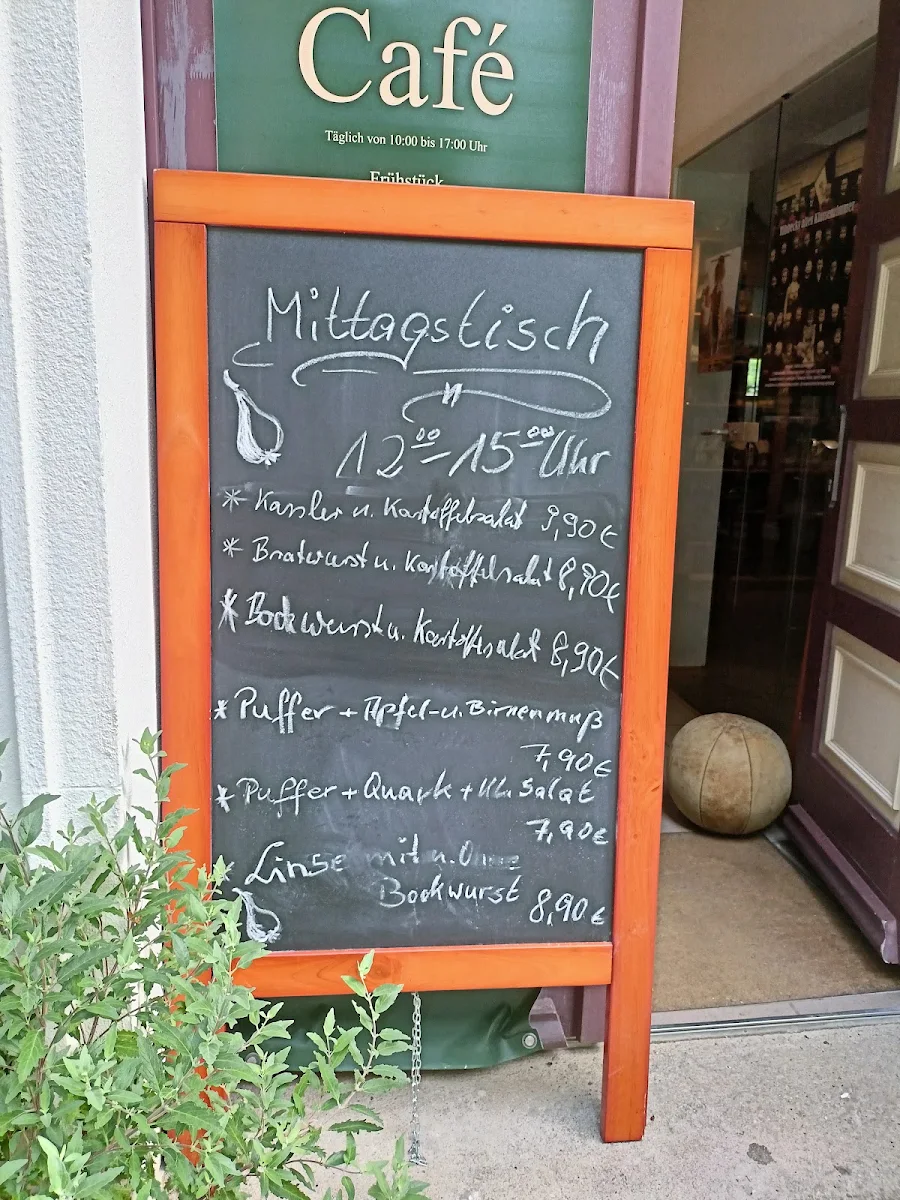 Café
Täglich von 10:00 bis 17:00 Uhr
Frühstück
Mittagstisch
12⁰⁰-15⁰⁰ Uhr
* Kassler u. Kartoffelsalat 9,90€
* Bratwurst u. Kartoffelsalat 8,90€
* Bockwurst u. Kartoffelsalat 8,90€
* Puffer + Apfel- u. Birnenmuß
7,90€
* Puffer + Quark + kl. Salat
7,90€
* Linse mit u. Ohne
Bockwurst 8,90€